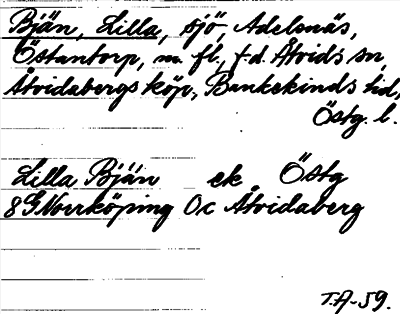 Bjän, Lilla, sjö, Adelsnäs,
Östantorp, m. fl., f.d. Åtvids sn,
Åtvidabergs köp, Bankekinds hd,
Östg. l.
Lilla Bjän ek Östg
8G Norrköping Oc Åtvidaberg
T.A-59.